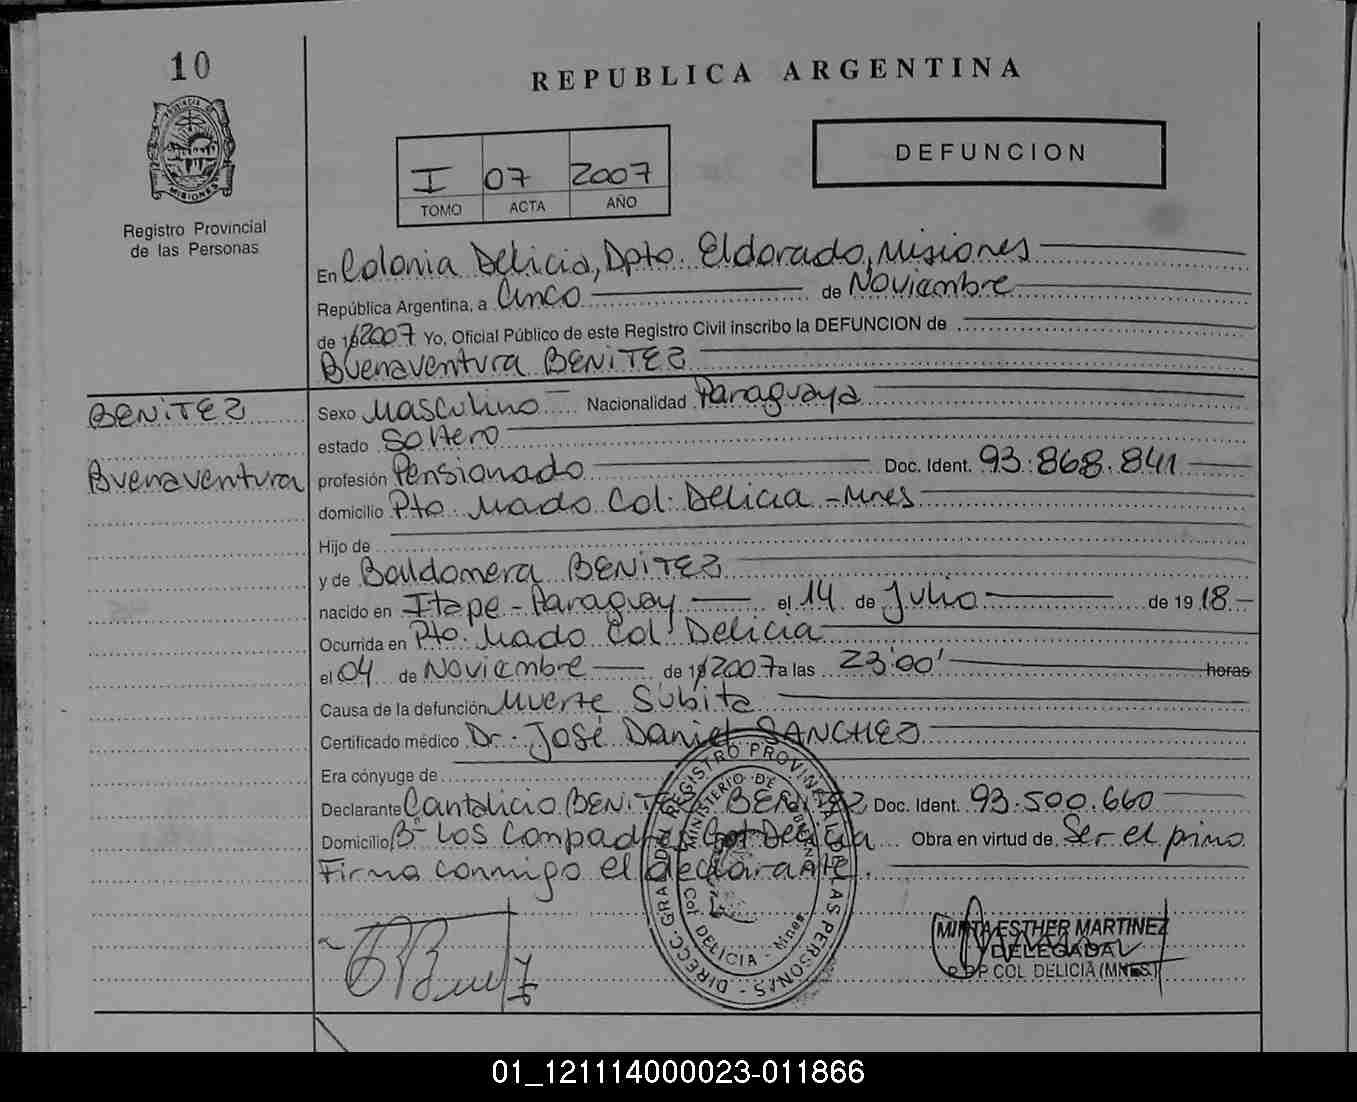 10
REPUBLICA ARGENTINA
PROVINCIA DE MISIONES
Registro Provincial
de las Personas
I 07 2007
TOMO ACTA AÑO
DEFUNCION
En Colonia Delicia, Dpto. Eldorado, Misiones
República Argentina, a Cinco de Noviembre
de 19 2007 Yo, Oficial Público de este Registro Civil inscribo la DEFUNCION de
Buenaventura BENITEZ
BENITEZ
Buenaventura
Sexo Masculino Nacionalidad Paraguaya
estado Soltero
profesión Pensionado Doc. Ident. 93.868.841
domicilio Pto. Mado Col. Delicia - Mnes
Hijo de
y de Baldomera BENITEZ
nacido en Itape - Paraguay el 14 de Julio de 19 18
Ocurrida en Pto. Mado Col. Delicia
el 04 de Noviembre de 19 2007 a las 23:00' horas
Causa de la defunción Muerte Subita
Certificado médico Dr. José Daniel SANCHEZ
Era cónyuge de
Declarante Cantalicio BENITEZ BENITEZ Doc. Ident. 93.500.660
Domicilio Bº Los Compadres Col. Delicia Obra en virtud de Ser el primo
Firma conmigo el declarante.
DIRECC. GRAL. DE REGISTRO PROVINCIAL DE LAS PERSONAS
MINISTERIO DE GOBIERNO
Col. DELICIA - Mnes.
MIRTA ESTHER MARTINEZ
DELEGADA
R.P.P COL. DELICIA (MNES.)
01_121114000023-011866